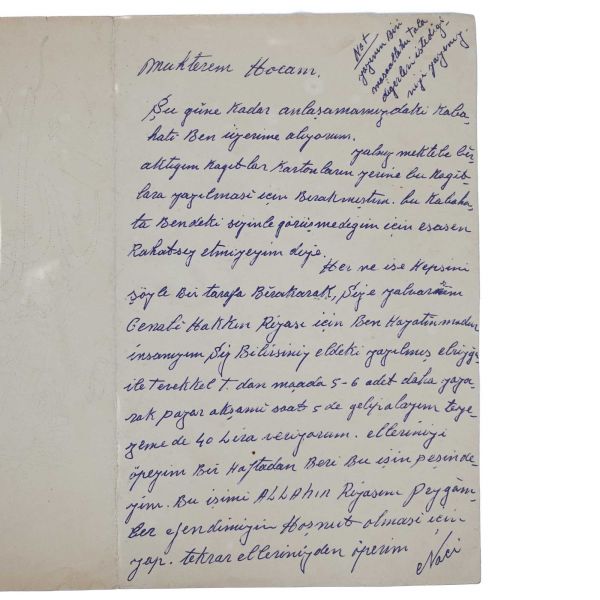 Not
yazının Biri
maşaallahu tala
diğerleri istediği-
nizi yazınız.
Muhterem Hocam.
Şu güne Kadar anlaşamamızdaki Kaba-
hati Ben üzerime alıyorum.
yalnız mektebe bır-
aktığım Kağıtlar Kartonların yerine bu Kağıt-
lara yazılması için Bırakmıştım. bu Kabaha-
ta Bendeki sizinle görüşmediğim için esasen
Rahatsız etmiyeyim diye.
Her ne ise Hepsini
şöyle Bir tarafa Bırakarak, Size yalvarırım
Cenabi Hakkın Rızası için Ben Hayatın madur
insanıyım, Siz Bilirsiniz eldeki yazılmış
ile tevekkel T. dan maada 5-6 adet daha yaza-
rak pazar akşamı saat 5 de gelip alayım teyze-
zeme de 40 Lira veriyorum. ellerinizi
öpeyim Bir Haftadan Beri Bu işin peşinde-
yim. Bu işimi ALLAHın Rızasını Peygam-
ber efendimizin Hoşnut olması için
yap. tekrar ellerinizden öperim
Naci